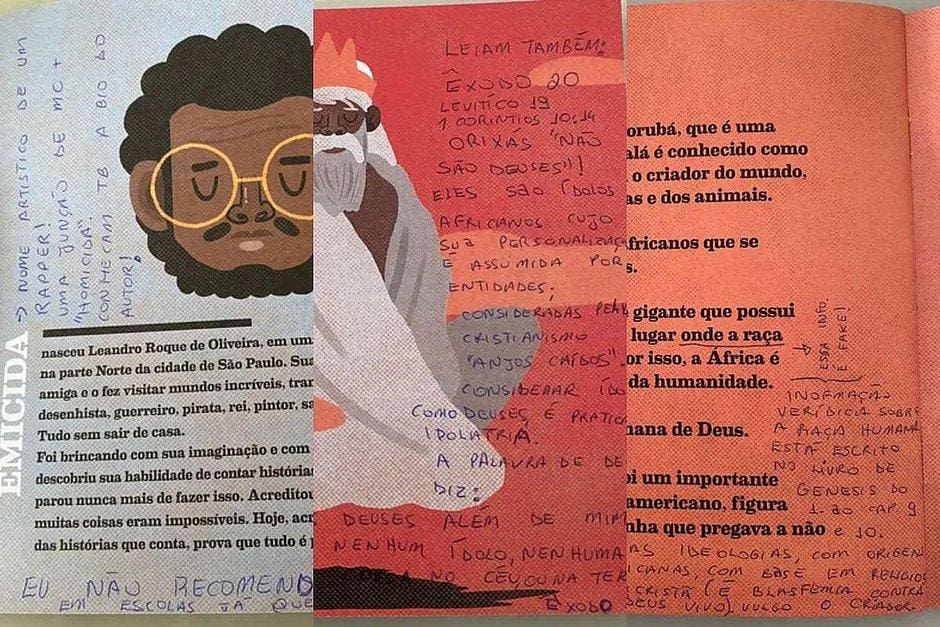 → NOME ARTISTICO DE UM
RAPPER!
UMA JUNÇÃO DE MC +
"HOMICIDA".
CONHEÇAM TB A BIO DO
AUTOR!
EMICIDA
nasceu Leandro Roque de Oliveira, em uma
na parte Norte da cidade de São Paulo. Sua
amiga e o fez visitar mundos incríveis, tran
desenhista, guerreiro, pirata, rei, pintor, sa
Tudo sem sair de casa.
Foi brincando com sua imaginação e com
descobriu sua habilidade de contar histórias
parou nunca mais de fazer isso. Acreditou
muitas coisas eram impossíveis. Hoje, acr
das histórias que conta, prova que tudo é p
EU NÃO RECOMENDO
EM ESCOLAS JÁ QUE
LEIAM TAMBÉM:
ÊXODO 20
LEVITICO 19
1 CORINTIOS 10:14
ORIXÁS "NÃO
SÃO DEUSES"!
ELES SÃO ÍDOLOS
AFRICANOS CUJO
SUA PERSONALIZAÇ
É ASSUMIDA POR
ENTIDADES,
CONSIDERADAS PELO
CRISTIANISMO
"ANJOS CAÍDOS".
CONSIDERAR ÍDO
COMO DEUSES É PRATIC
IDOLATRIA.
A PALAVRA DE DE
DIZ:
DEUSES ALÉM DE MIM
NENHUM ÍDOLO, NENHUMA
NO CÉU OU NA TER
ÊXODO
orubá, que é uma
alá é conhecido como
o criador do mundo,
as e dos animais.
fricanos que se
s.
gigante que possui
lugar onde a raça
or isso, a África é
da humanidade.
→ ESSA INFO.
É FAKE!
ana de Deus.
oi um importante
americano, figura
nha que pregava a não
INOFMAÇÃO
VERÍDICA SOBRE
A RAÇA HUMANA
ESTÁ ESCRITO
NO LIVRO DE
GENESIS DO
1 AO CAP. 9
e 10.
AS IDEOLOGIAS, COM ORIGEN
ICANAS, COM BASE EM RELIGIO
CRISTÃ (É BLASFÊMIA CONTRA
DEUS VIVO) VULGO O CRIADOR.